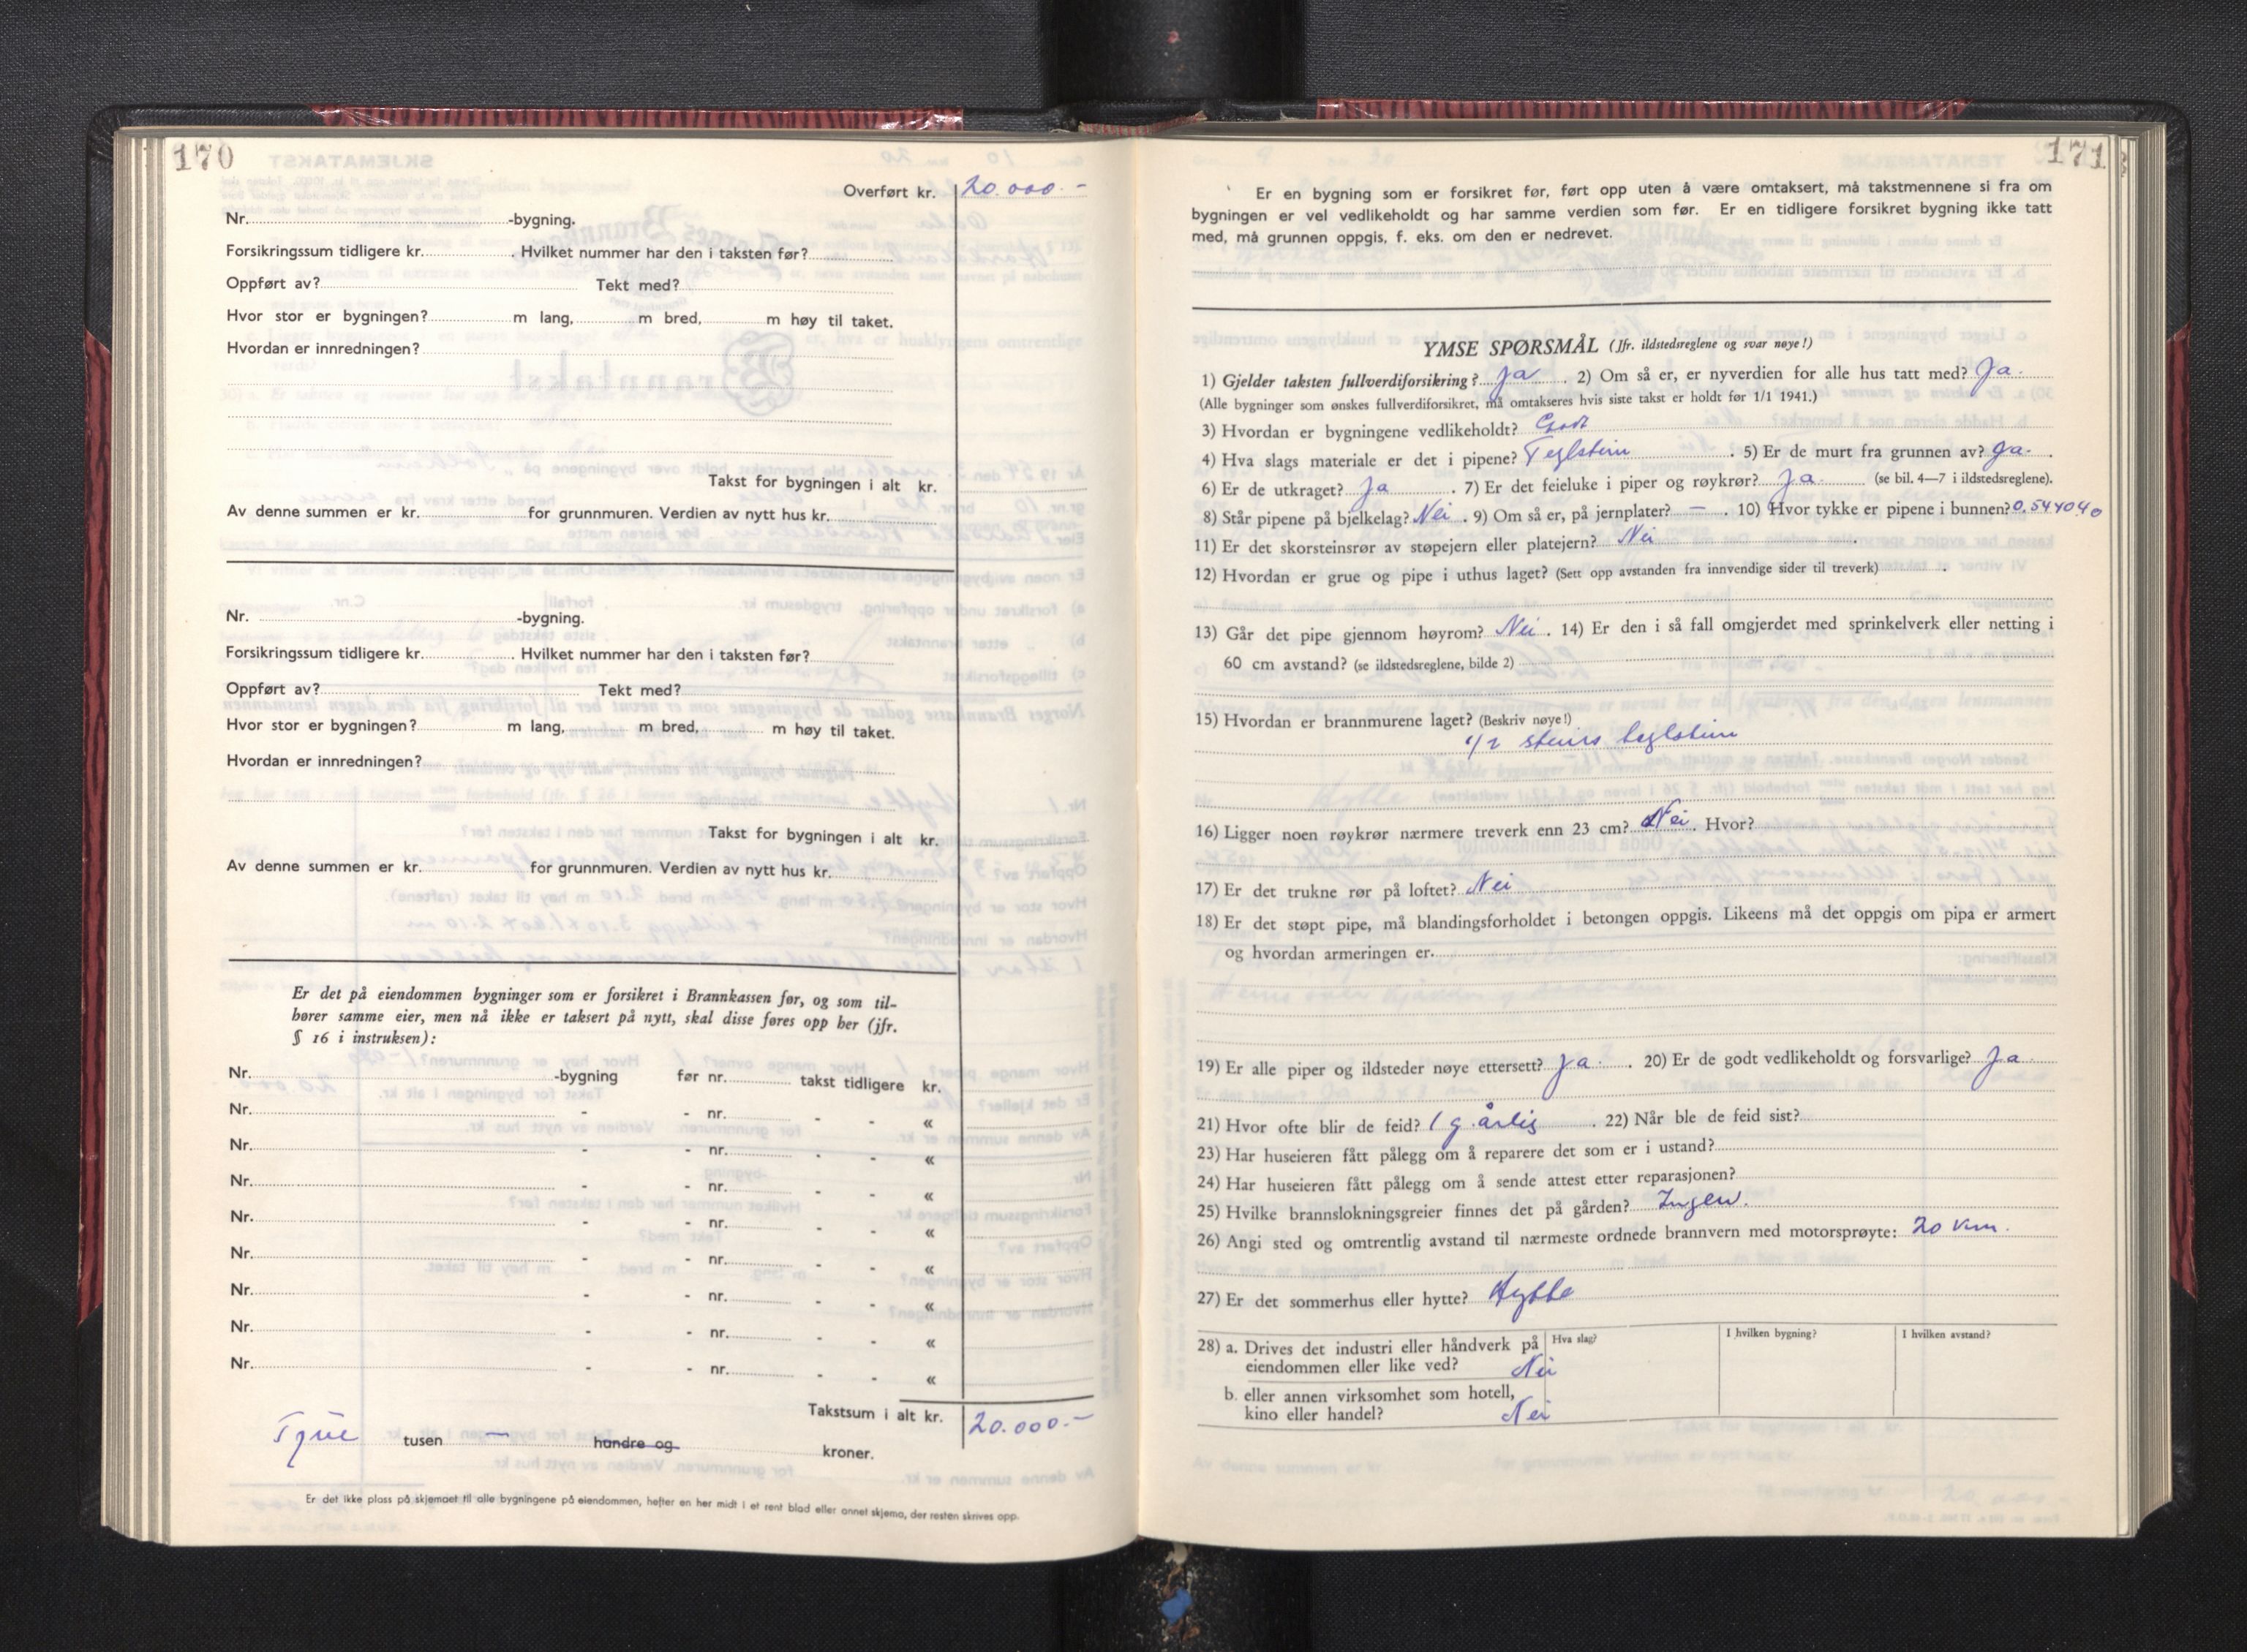 170
Overført kr. 20.000.-
Nr. -bygning.
Forsikringssum tidligere kr. . Hvilket nummer har den i taksten før?
Oppført av? Tekt med?
Hvor stor er bygningen? m lang, m bred, m høy til taket.
Hvordan er innredningen?
Takst for bygningen i alt kr.
Av denne summen er kr. for grunnmuren. Verdien av nytt hus kr.
Nr. -bygning.
Forsikringssum tidligere kr. . Hvilket nummer har den i taksten før?
Oppført av? Tekt med?
Hvor stor er bygningen? m lang, m bred, m høy til taket.
Hvordan er innredningen?
Takst for bygningen i alt kr.
Av denne summen er kr. for grunnmuren. Verdien av nytt hus kr.
Er det på eiendommen bygninger som er forsikret i Brannkassen før, og som til-
hører samme eier, men nå ikke er taksert på nytt, skal disse føres opp her (jfr.
§ 16 i instruksen):
Nr. -bygning før nr. takst tidligere kr.
Nr. - - nr. - - «
Nr. - - nr. - - «
Nr. - - nr. - - «
Nr. - - nr. - - «
Nr. - - nr. - - «
Nr. - - nr. - - «
Nr. - - nr. - - «
Nr. - - nr. - - «
Takstsum i alt kr. 20.000.-
Tjue tusen — hundre og kroner.
Er det ikke plass på skjemaet til alle bygningene på eiendommen, hefter en her midt i et rent blad eller annet skjema, der resten skrives opp.
171
Er en bygning som er forsikret før, ført opp uten å være omtaksert, må takstmennene si fra om
bygningen er vel vedlikeholdt og har samme verdien som før. Er en tidligere forsikret bygning ikke tatt
med, må grunnen oppgis, f. eks. om den er nedrevet.
YMSE SPØRSMÅL (Jfr. ildstedsreglene og svar nøye!)
1) Gjelder taksten fullverdiforsikring? Ja . 2) Om så er, er nyverdien for alle hus tatt med? Ja.
(Alle bygninger som ønskes fullverdiforsikret, må omtakseres hvis siste takst er holdt før 1/1 1941.)
3) Hvordan er bygningene vedlikeholdt? Godt
4) Hva slags materiale er det i pipene? Teglstein . 5) Er de murt fra grunnen av? Ja. .
6) Er de utkraget? Ja . 7) Er det feieluke i piper og røykrør? Ja. (se bil. 4—7 i ildstedsreglene).
8) Står pipene på bjelkelag? Nei . 9) Om så er, på jernplater? — . 10) Hvor tykke er pipene i bunnen?
11) Er det skorsteinsrør av støpejern eller platejern? Nei .
12) Hvordan er grue og pipe i uthus laget? (Sett opp avstanden fra innvendige sider til treverk) .
13) Går det pipe gjennom høyrom? Nei . 14) Er den i så fall omgjerdet med sprinkelverk eller netting i
60 cm avstand? (se ildstedsreglene, bilde 2)
15) Hvordan er brannmurene laget? (Beskriv nøye!)
1/2 steins teglstein
16) Ligger noen røykrør nærmere treverk enn 23 cm? Nei . Hvor?
17) Er det trukne rør på loftet? Nei
18) Er det støpt pipe, må blandingsforholdet i betongen oppgis. Likeens må det oppgis om pipa er armert
og hvordan armeringen er.
19) Er alle piper og ildsteder nøye ettersett? Ja . 20) Er de godt vedlikeholdt og forsvarlige? Ja
21) Hvor ofte blir de feid? 1 g. årlig . 22) Når ble de feid sist?
23) Har huseieren fått pålegg om å reparere det som er i ustand?
24) Har huseieren fått pålegg om å sende attest etter reparasjonen?
25) Hvilke brannslokningsgreier finnes det på gården? Ingen.
26) Angi sted og omtrentlig avstand til nærmeste ordnede brannvern med motorsprøyte: 20 km.
27) Er det sommerhus eller hytte? Hytte
28) a. Drives det industri eller håndverk på Hva slag? I hvilken bygning? I hvilken avstand?
eiendommen eller like ved? Nei
b. eller annen virksomhet som hotell,
kino eller handel? Nei